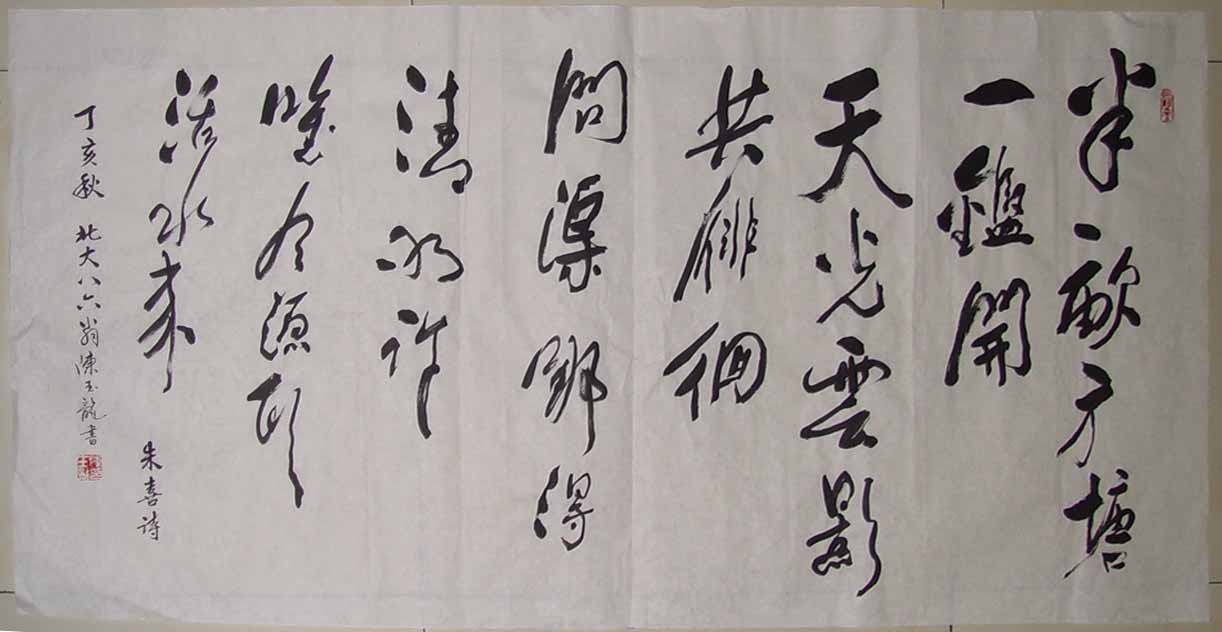 半畝方塘
一鑑開
天光雲影
共徘徊
問渠那得
清如許
唯有源頭
活水來
朱喜詩
丁亥秋 北大八六翁陳玉龍書